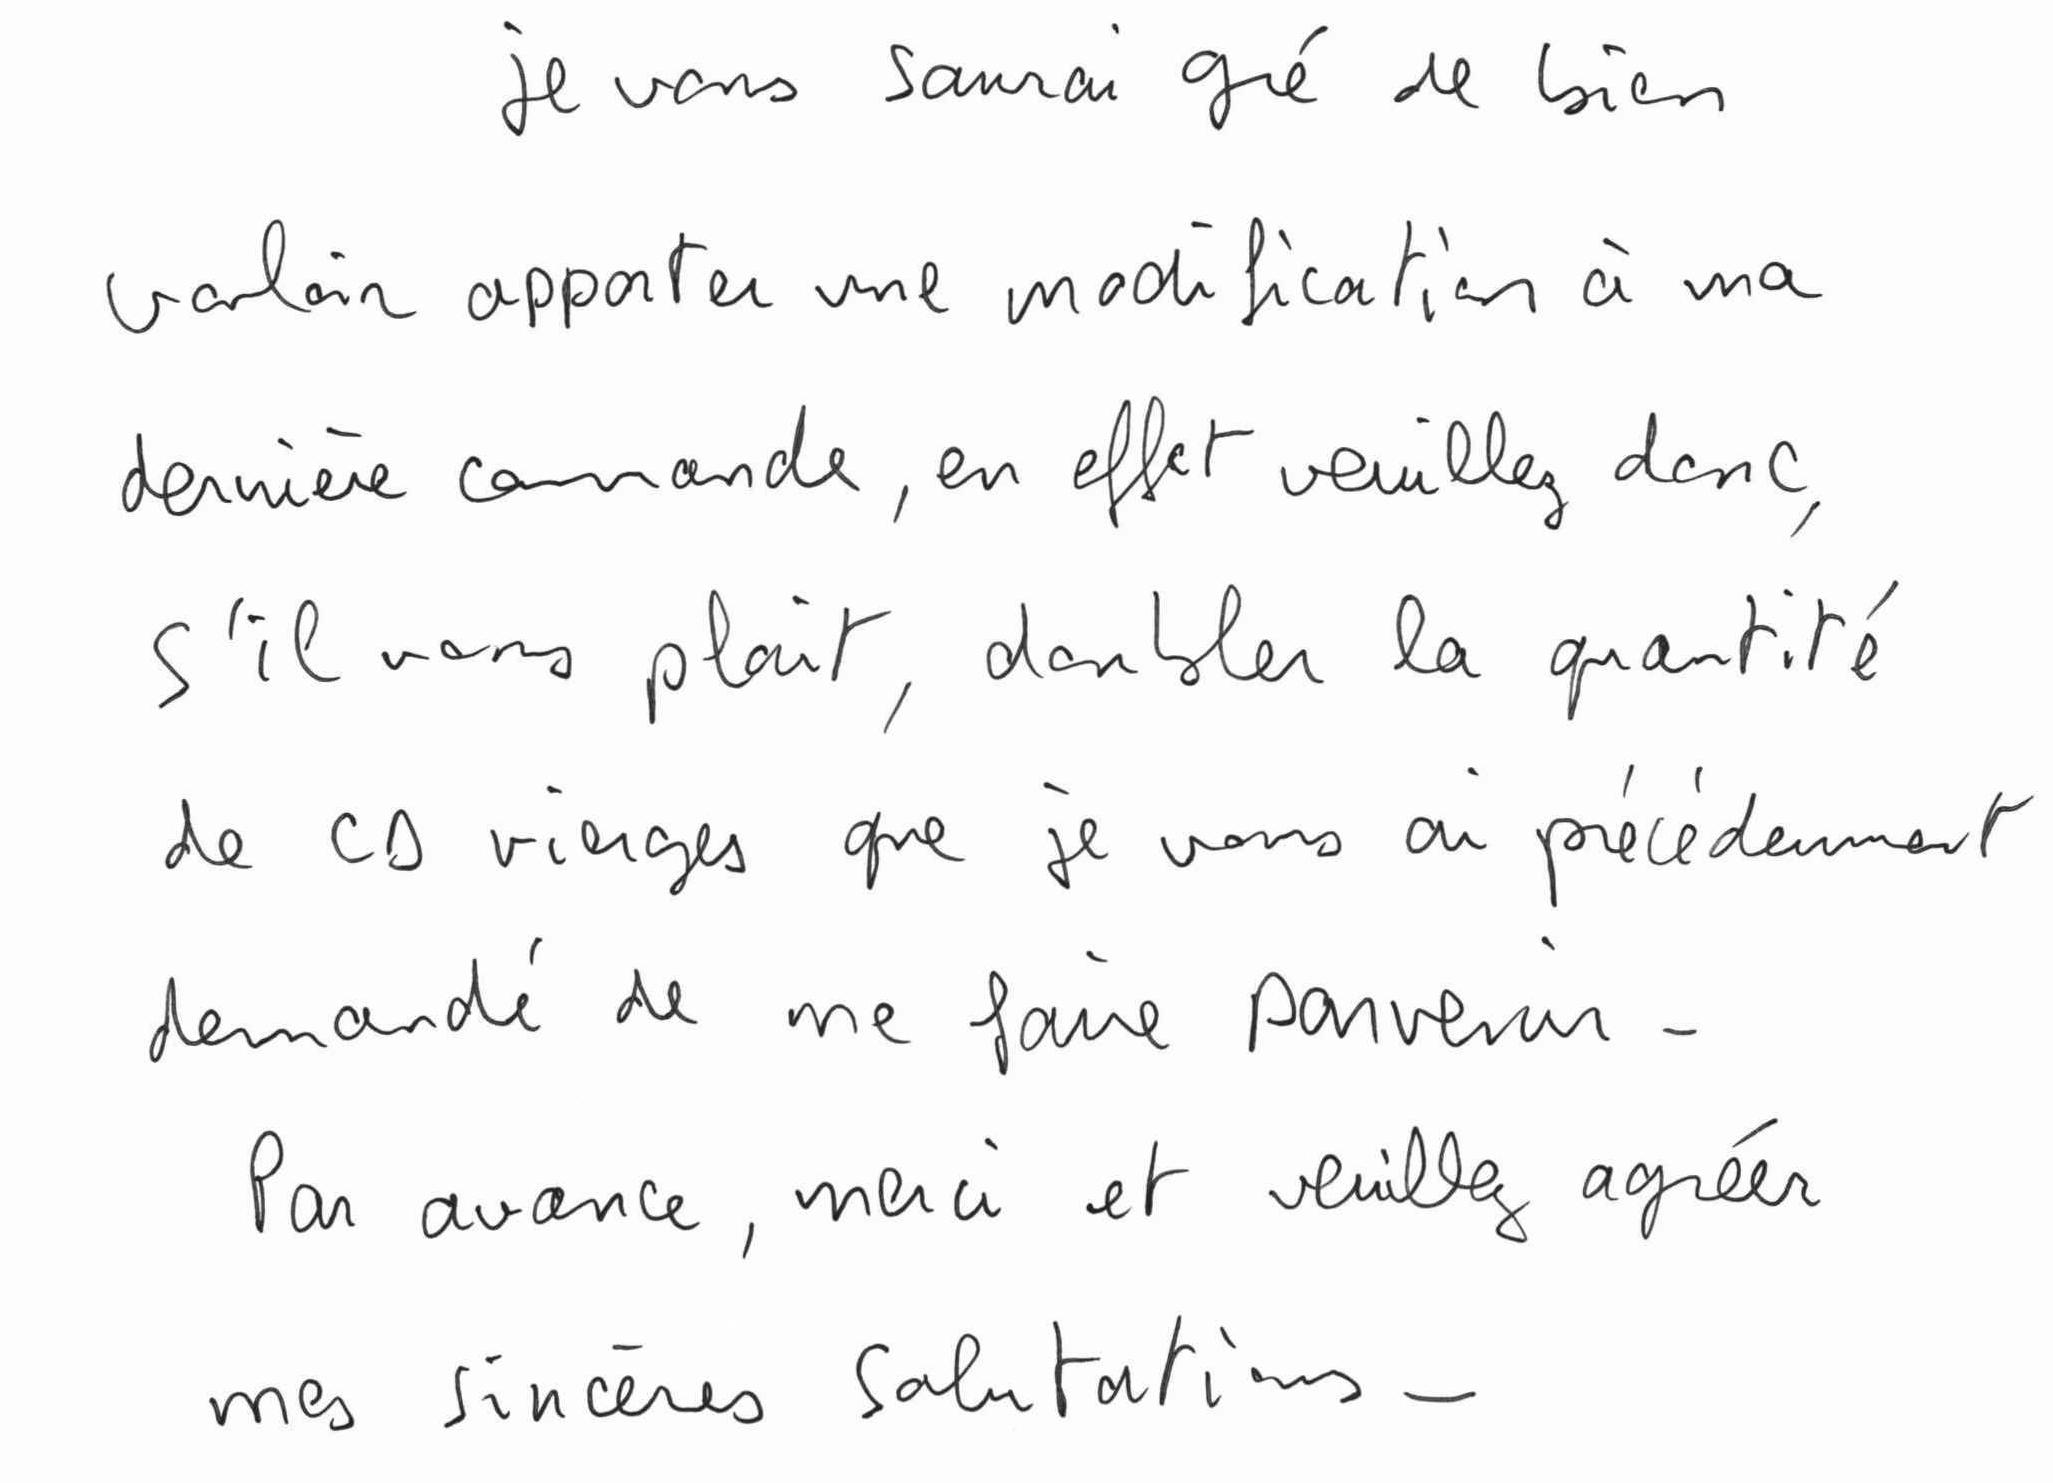 je vous saurai gré de bien
vouloir apporter une modification à ma
dernière commande, en effet veuillez donc,
s'il vous plait, doubler la quantité
de CD vierges que je vous ai précédemment
demandé de me faire parvenir -
Par avance, merci et veuillez agréer
mes sincères salutations -